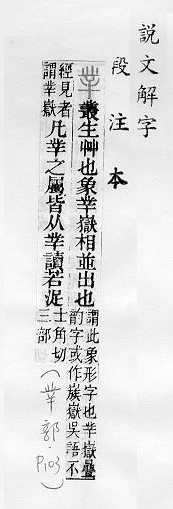 説文解字
段注本
丵
叢生艸也象丵嶽相並出也
謂此象形字也丵嶽疊
韵字或作蔟嶽吳語不
經見者
謂丵嶽
凡丵之屬皆从丵讀若浞
士角切
三部
(丵部.P103)